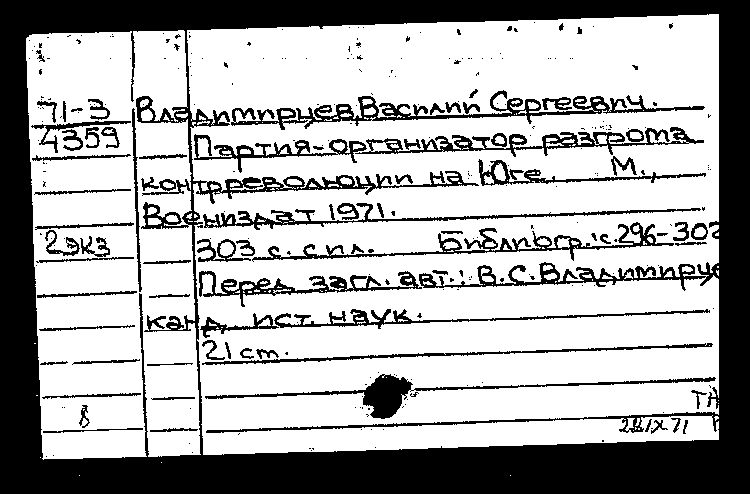 71-3 Владимирцев, Василий Сергеевич.
4359 Партия-организатор разгрома
контрреволюции на Юге. М.,
Воениздат, 1971.
2экз 303 с. с ил. Библиогр.: с. 296-302
Перед загл. авт.: В.С. Владимирце
канд. ист. наук.
21 cm.
8 ТА
28/IX 71